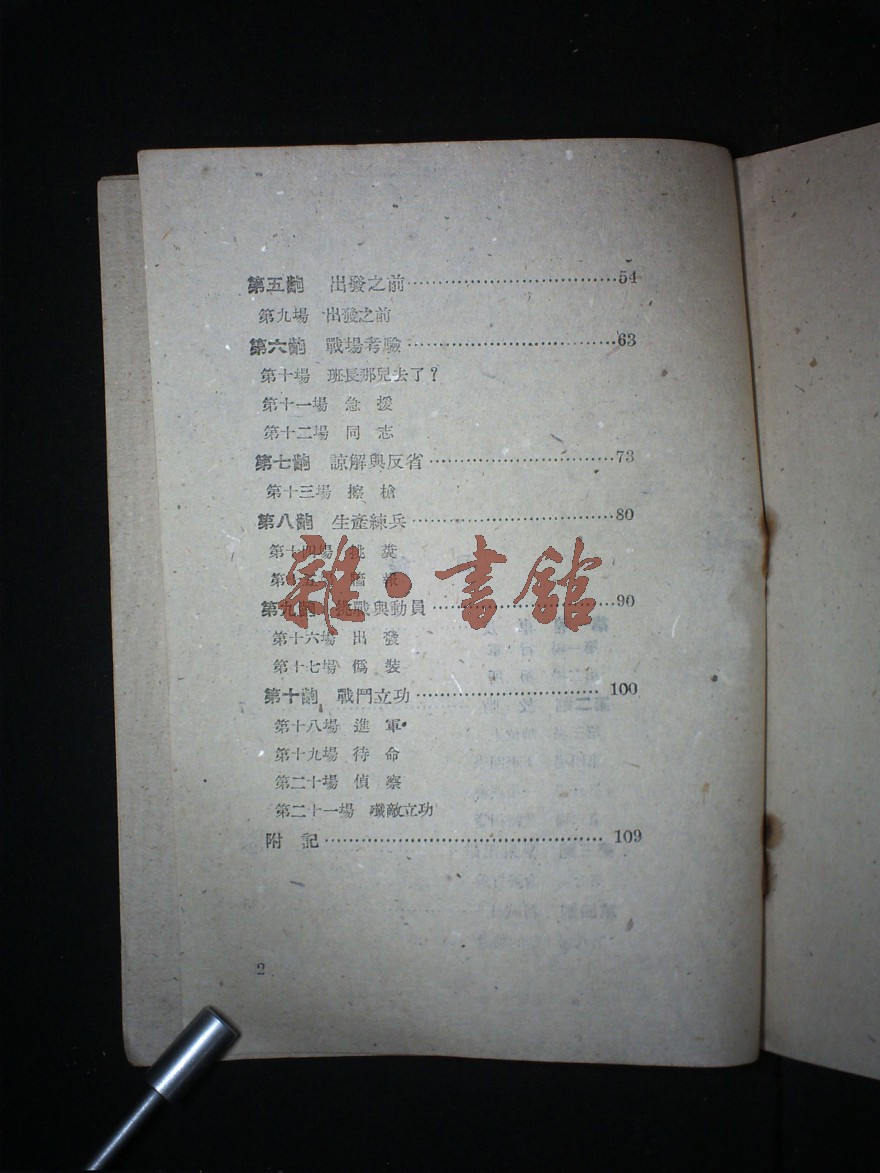 第五齣 出發之前……………………………54
第九場 出發之前
第六齣 戰場考驗……………………………63
第十場 班長那兒去了？
第十一場 急 援
第十二場 同 志
第七齣 諒解與反省…………………………73
第十三場 擦 槍
第八齣 生產練兵……………………………80
第十四場 挑 糞
五 報
雜·書館
第九齣 挑戰與動員…………………………90
第十六場 出 發
第十七場 僞 裝
第十齣 戰鬥立功…………………………100
第十八場 進 軍
第十九場 待 命
第二十場 偵 察
第二十一場 殲敵立功
附 記……………………………………109
2